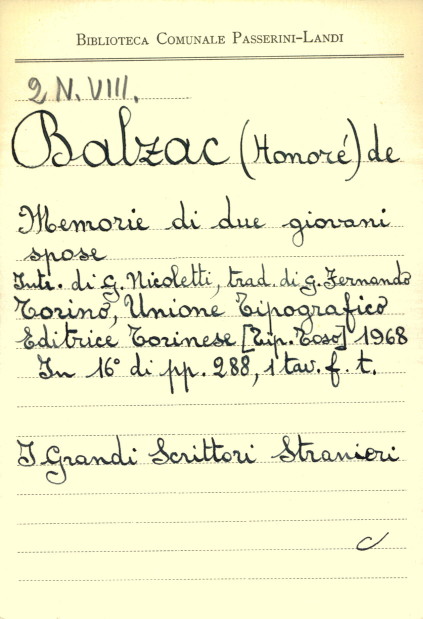 BIBLIOTECA COMUNALE PASSERINI-LANDI
2 N. VIII.
Balzac (Honoré) de
Memorie di due giovani
spose
Intr. di G. Nicoletti, trad. di G. Fernando
Torino, Unione Tipografico
Editrice Torinese [Tip. Toso] 1968
In 16° di pp. 288, 1 tav. f. t.
I Grandi Scrittori Stranieri